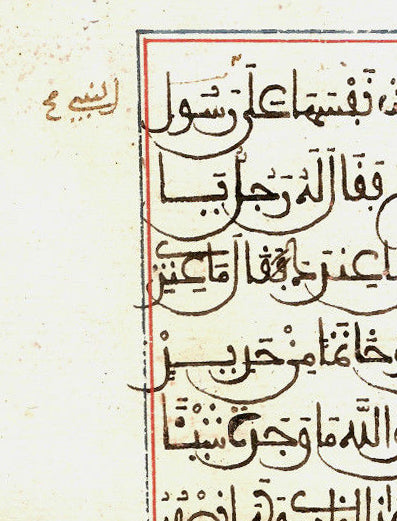 النبي صح
نفسها على رسول
فقال له رجل يا
عندك فقال ما عندي
خاتما من حديد
الله ما وجدت شيئا